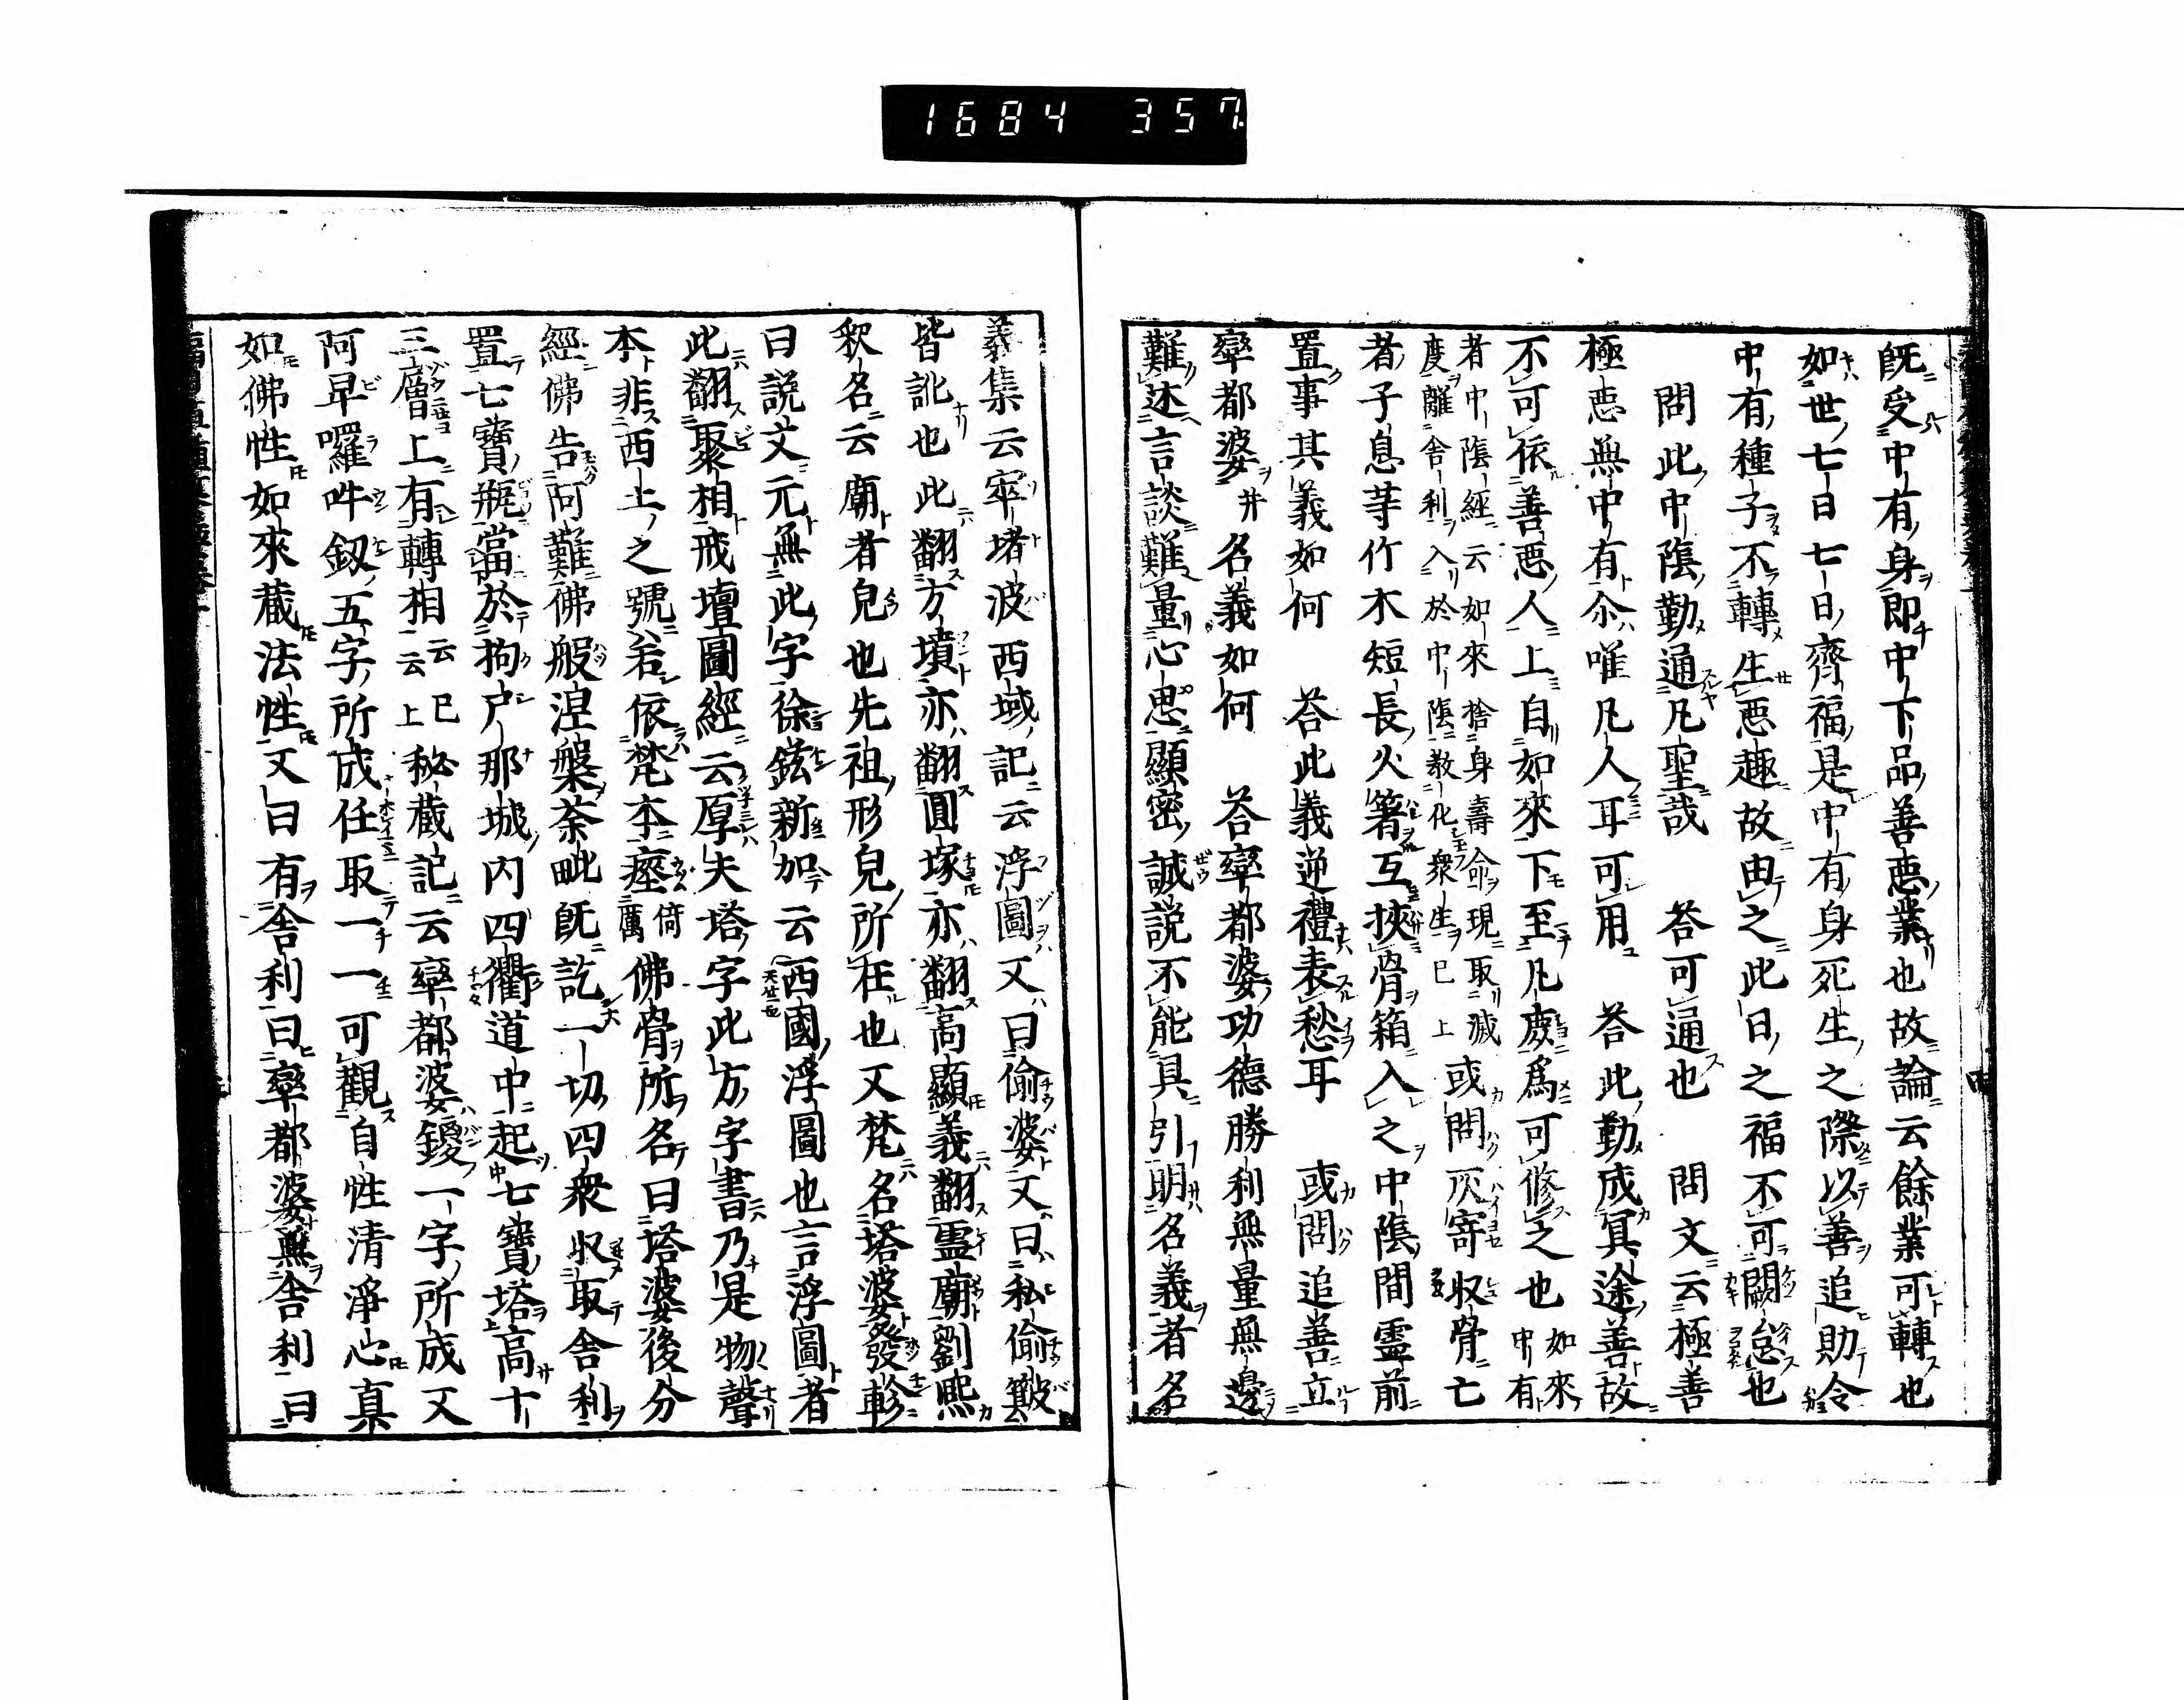 1684 357
既受中有身即中下品善悪業也故論云餘業可轉也
如世七日七日齊福是中有身死生之際以善追助令
中有種子不轉生悪趣故由之此日之福不可闕怠也
問此中陰勤通凡聖哉 荅可通也 問文云極善
極悪無中有尒唯凡人耳可用 荅此勤成冥途善故
不可依善悪人上自如來下至凡處爲可修之也 如來中有
者中陰經云如來捨身壽命現取滅
度離舎利入於中陰教化衆生已上 或問灰寄収骨亡
者子息䓁竹木短長火箸互挾骨箱入之中陰間霊前
置事其義如何 荅此義逆禮表愁耳 或問追善立
率都婆并名義如何 荅率都婆功德勝利無量無邊
難述言談難量心思顯密誠説不能具引明名義者名
義集云窣堵波西域記云浮圖又曰偷婆又曰私偷簸
皆訛也此翻方墳亦翻圓塚亦翻高顯義翻霊廟劉熙
釈名云廟者皃也先祖形皃所在也又梵名塔婆發軫
曰説文元無此字徐鉉新加云西國浮圖也言浮圖者
此翻聚相戒壇圖經云原夫塔字此方字書乃是物聲
本非西土之號若依梵本瘞 倚厲 佛骨所名曰塔婆後分
經佛告阿難佛般涅槃荼毗既訖一切四衆収取舎利
置七寶瓶當於拘尸那城内四衢道中起七寶塔高十
三層上有轉相 云云 已上 秘蔵記云率都婆鑁一字所成又
阿卑囉吽釼五字所成任取一一可觀自性清淨心真
如佛性如來蔵法性文曰有舎利曰率都婆無舎利曰